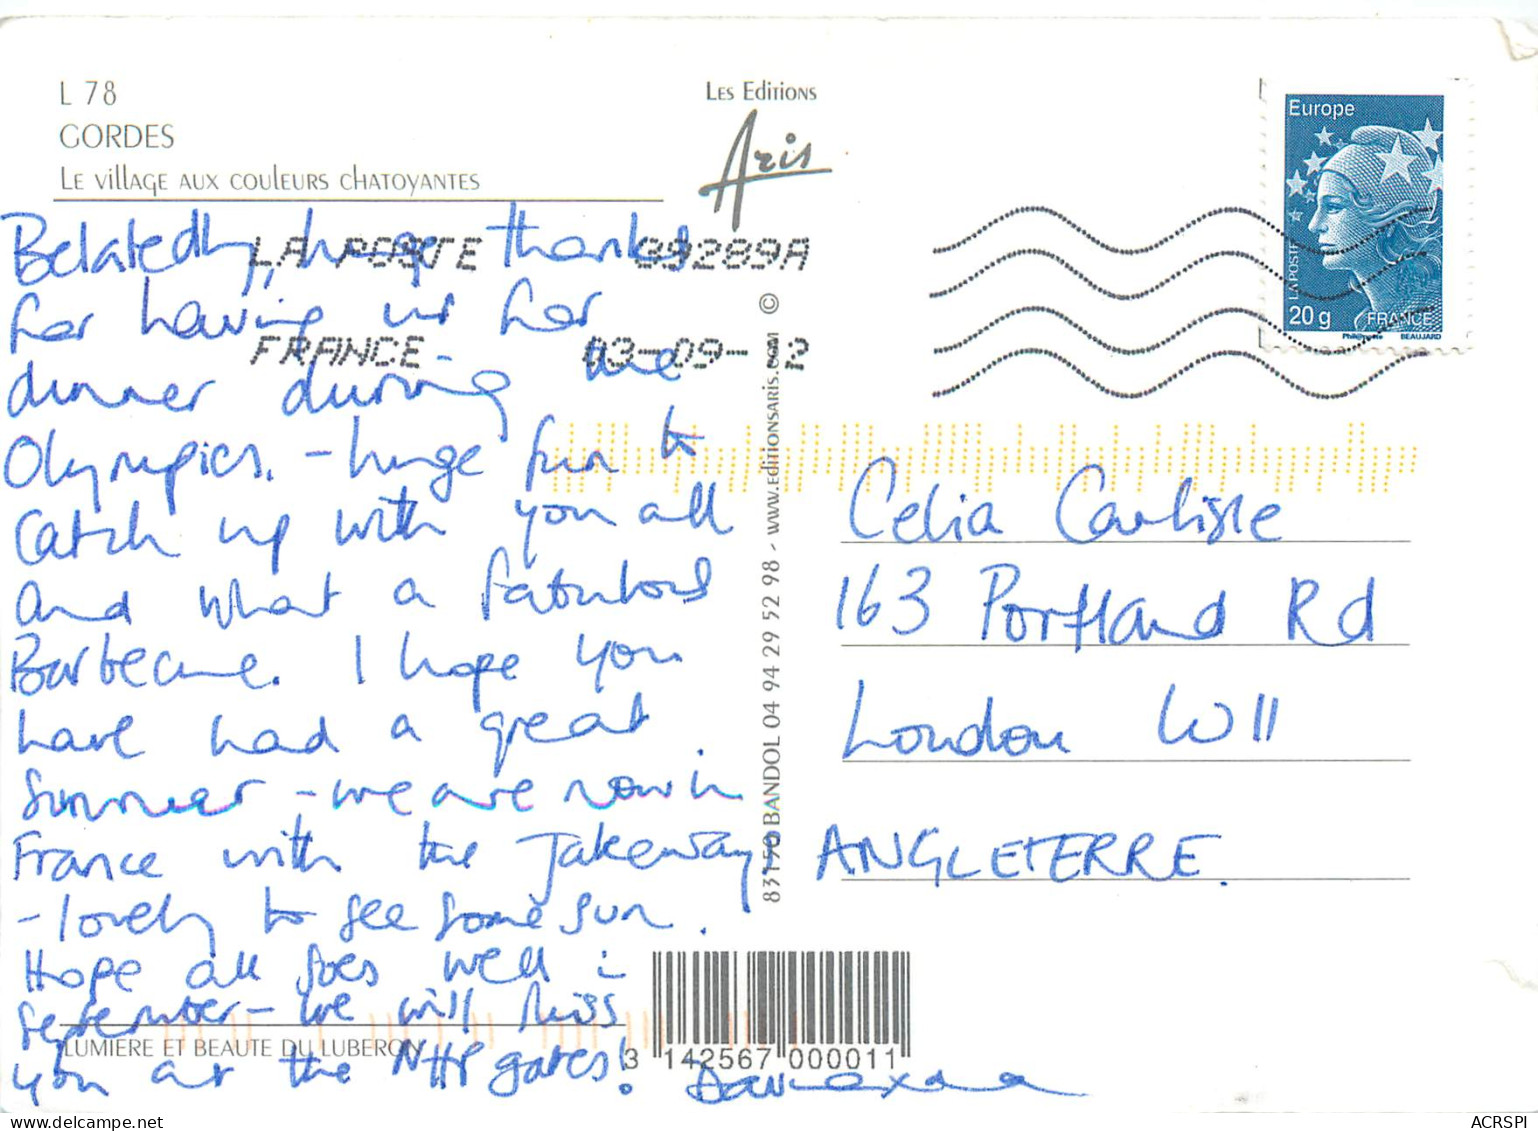 L 78
GORDES
Le village aux couleurs chatoyantes
Les Editions
Aris
Europe
LA POSTE
20 g FRANCE
BEAUJARD
LA POSTE 39289A
FRANCE 03-09-12
Belatedly, huge thanks
for having us for
dinner during the
Olympics. - huge fun to
catch up with you all
and what a fabulous
Barbecue. I hope you
have had a great
Summer - we are now in
France with the Takeaway,
- lovely to see some sun.
Hope all goes well in
September - we will miss
you at the NHP gates!
83150 BANDOL 04 94 29 52 98 - www.editionsaris.com ©
Celia Carlisle
163 Portland Rd
London W11
ANGLETERRE.
LUMIERE ET BEAUTE DU LUBERON
3 142567 000011
ACRSPI